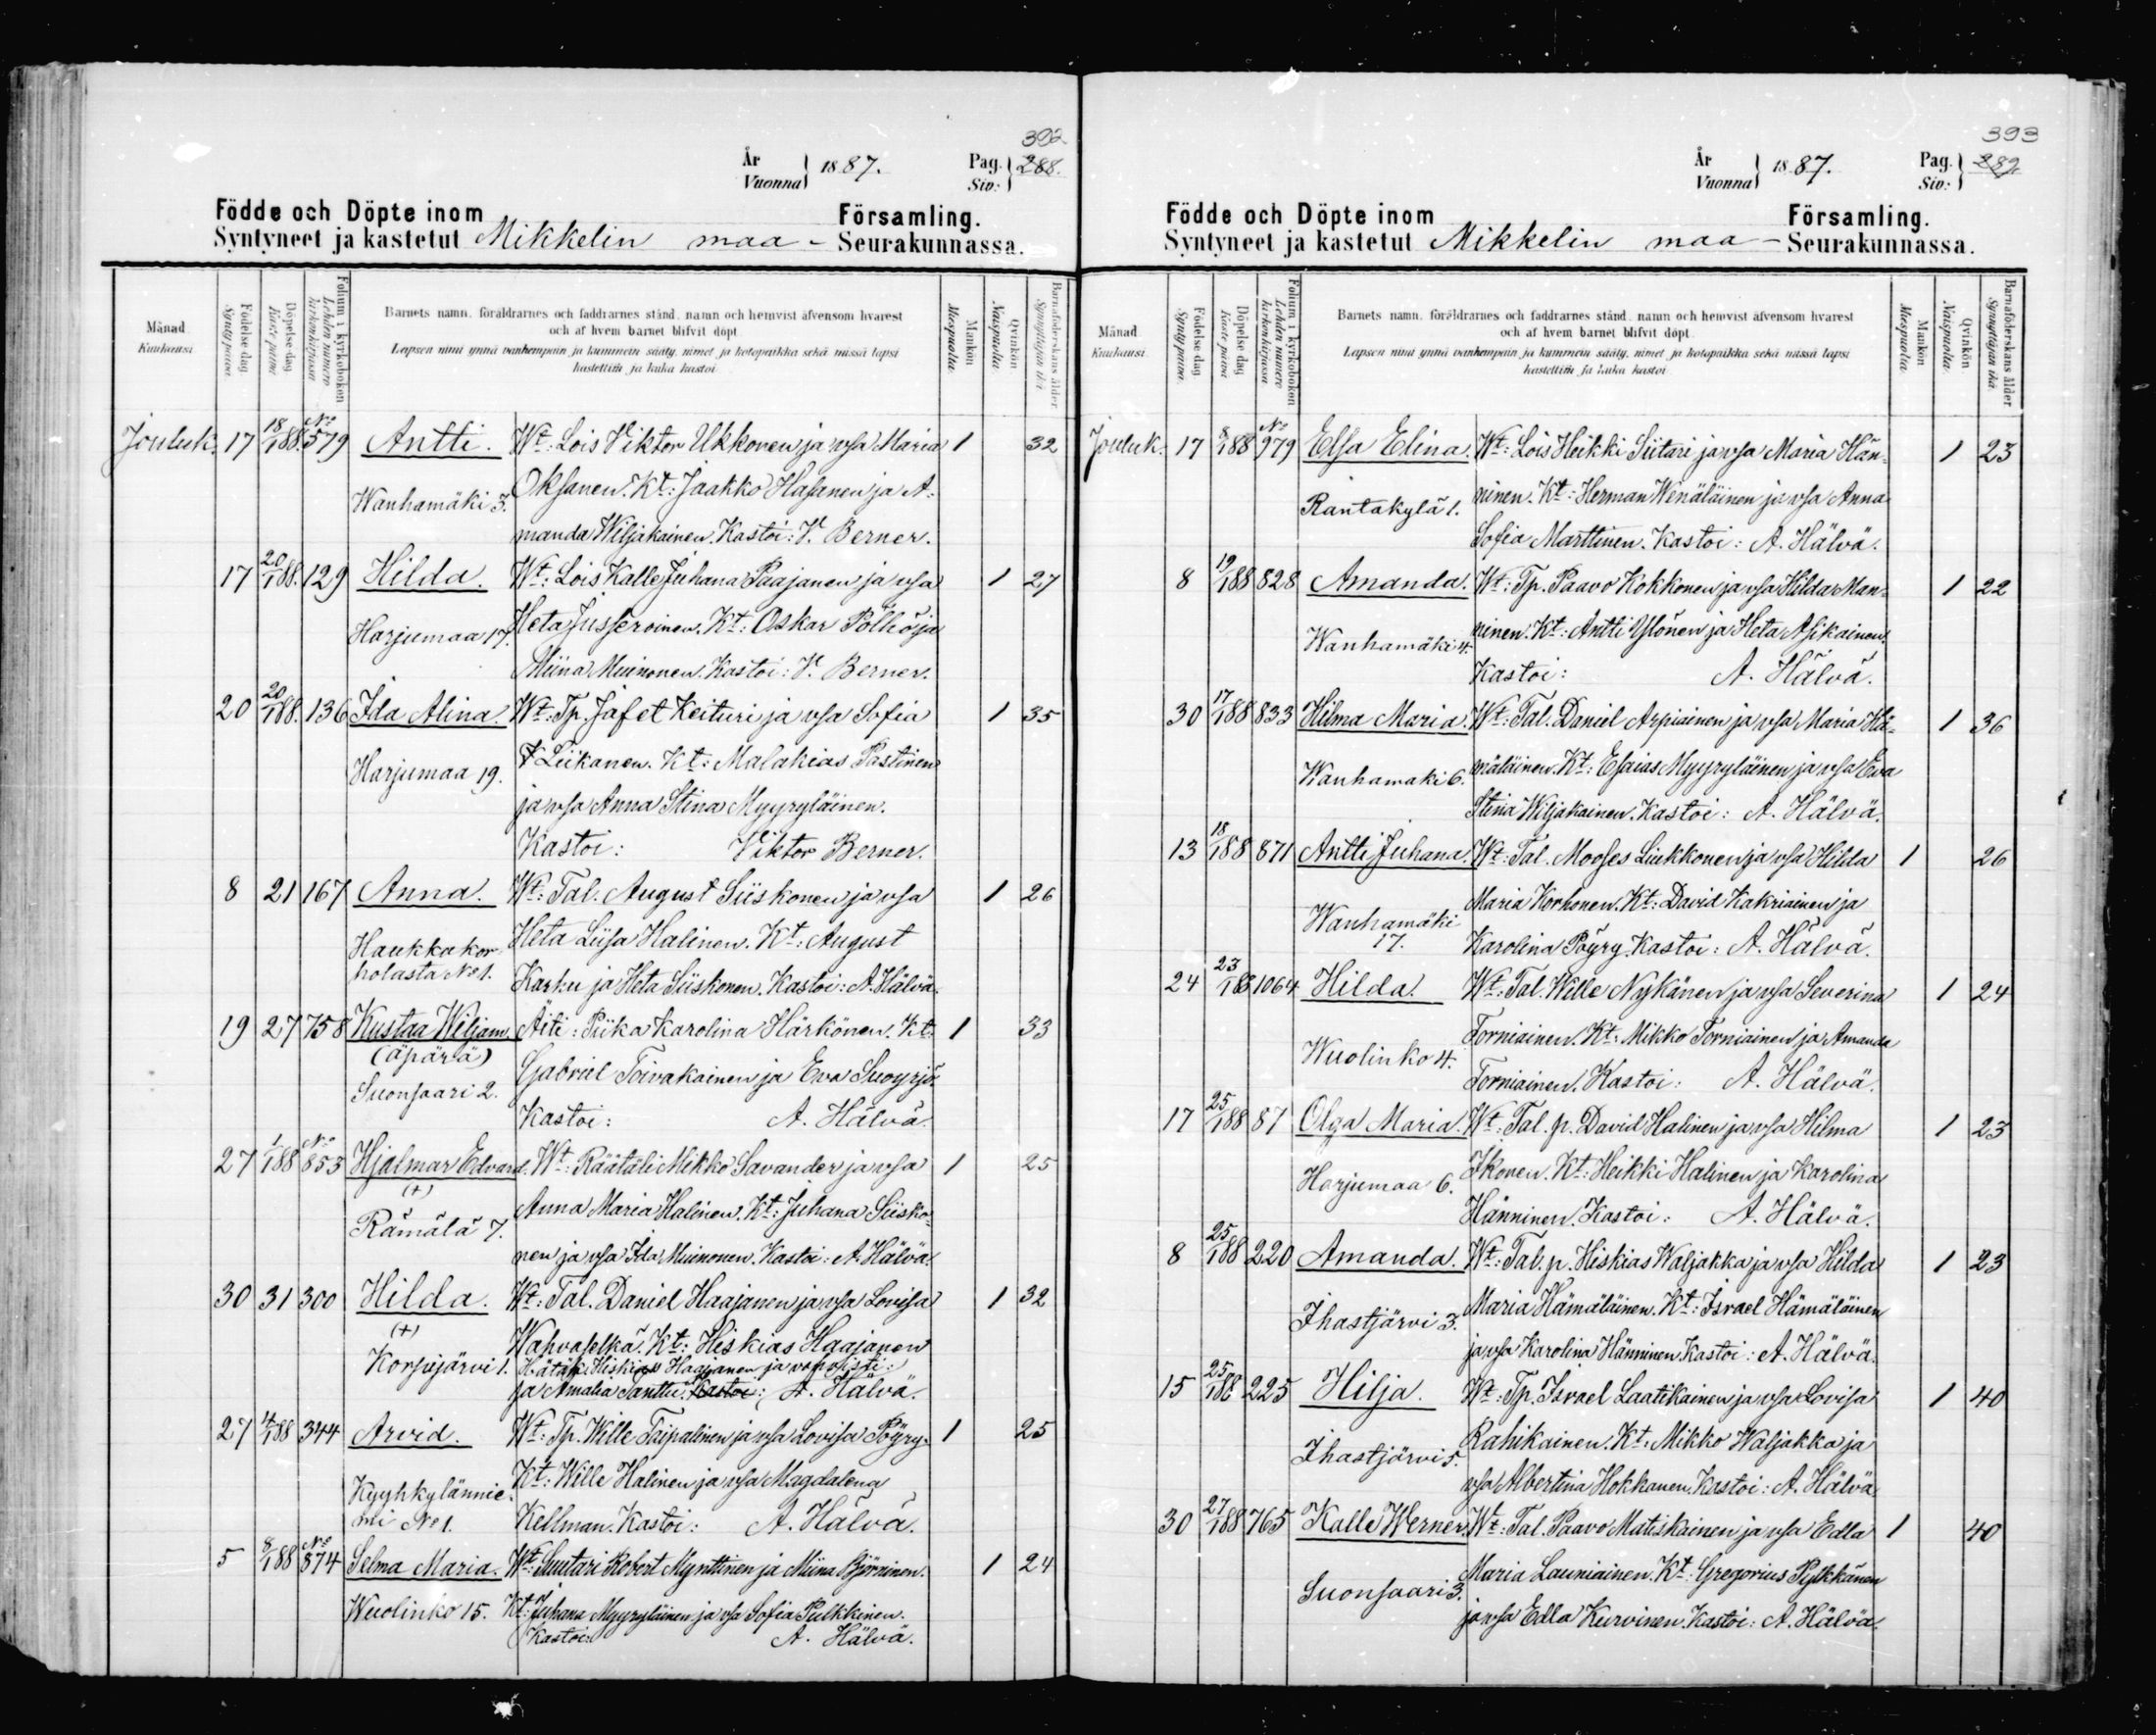 392
År
Vuonna
1887.
Pag.
Siv:
288.
Födde och Döpte inom
Syntyneet ja kastetut
Mikkelin maa-
Församling.
Seurakunnassa.
Månad
Kuukausi
Födelse dag
Synty päivä.
Döpelse dag
Kaste päivä
Folium i kyrkoboken
Lehden numero kirkonkirjassa
Barnets namn, föräldrarnes och faddrarnes stånd, namn och hemvist äfvensom hvarest
och af hvem barnet blifvit döpt.
Lapsen nimi ynnä vanhempain ja kummein sääty, nimet ja kotopaikka sekä missä lapsi
kastettiin ja kuka kastoi
Mankön
Miespuolta.
Qvinkön
Naispuolta
Barnaföderskans ålder
Synnyttäjän ikä
Jouluk. 17 18/1 88. No 579 Antti. Wt: Lois Viktor Ukkonen ja vsa Maria 1 32
Wanhamäki 3. Oksanen. Kt: Jaakko Hasanen ja A-
manda Wiljakainen. Kastoi: V. Berner.
17 20/1 88. 129 Hilda. Wt: Lois Kalle Juhana Paajanen ja vsa 1 27
Harjumaa 17. Heta Jusseroinen. Kt: Oskar Pöllö ja
Miina Muinonen. Kastoi: V. Berner.
20 20/1 88. 136 Ida Alina. Wt: Tp. Jafet Keituri ja vsa Sofia 1 35
Harjumaa 19. Liikanen. Kt: Malakias Pastinen
ja vsa Anna Stina Myyryläinen.
Kastoi: Viktor Berner.
8 21 167 Anna. Wt: Tal. August Siiskonen ja vsa 1 26
Haukkakor- Heta Liisa Halinen. Kt: August
holasta No 1. Karhu ja Heta Siiskonen. Kastoi: A. Hälvä.
19 27 758 Kustaa Wiljam. Äiti: Piika Karolina Härkönen. Kt: 1 33
(äpärä) Gabriel Toivakainen ja Eva Suoyrjö.
Suonsaari 2.
Kastoi: A. Hälvä.
27 1/1 88 No 853 Hjalmar Edvard. Wt: Räätäli Mikko Savander ja vsa 1 25
(+)
Rämälä 7. Anna Maria Halinen. Kt: Juhana Siisko-
nen ja vsa Ida Muinonen. Kastoi: A. Hälvä.
30 31 300 Hilda. Wt: Tal. Daniel Haajanen ja vsa Lovisa 1 32
(+) Wahvaselkä. Kt: Hiskias Haajanen
Korpijärvi 1. Hätäk. Hiskias Haajanen ja vahvisti:
ja Amalia Santtu. Kastoi: A. Hälvä.
27 4/1 88 344 Arvid. Wt: Tp. Wille Taipalinen ja vsa Lovisa Pöyry. 1 25
Kyyhkylännie- Kt: Wille Halinen ja vsa Magdalena
mi No 1. Kellman. Kastoi: A. Hälvä.
5 8/1 88 No 874 Selma Maria. Wt: Suutari Robert Mynttinen ja Miina Björninen. 1 24
Wuolinko 15. Kt: Juhana Myyryläinen ja vsa Sofia Pulkkinen.
Kastoi: A. Hälvä.
393
År
Vuonna
1887.
Pag.
Siv:
289.
Födde och Döpte inom
Syntyneet ja kastetut
Mikkelin maa-
Församling.
Seurakunnassa.
Månad
Kuukausi
Födelse dag
Synty päivä.
Döpelse dag
Kaste päivä
Folium i kyrkoboken
Lehden numero kirkonkirjassa
Barnets namn, föräldrarnes och faddrarnes stånd, namn och hemvist äfvensom hvarest
och af hvem barnet blifvit döpt.
Lapsen nimi ynnä vanhempain ja kummein sääty, nimet ja kotopaikka sekä missä lapsi
kastettiin ja kuka kastoi
Mankön
Miespuolta.
Qvinkön
Naispuolta
Barnaföderskans ålder
Synnyttäjän ikä
Jouluk. 17 8/1 88 No 979 Elsa Elina. Wt: Lois Heikki Siitari ja vsa Maria Hän- 1 23
Rantakylä 1. ninen. Kt: Herman Wenäläinen ja vsa Anna
Sofia Marttinen. Kastoi: A. Hälvä.
8 19/1 88 828 Amanda. Wt: Tp. Paavo Kokkonen ja vsa Hilda Man- 1 22
Wanhamäki 4. ninen. Kt: Antti Ylönen ja Heta Asikainen.
Kastoi: A. Hälvä.
30 17/1 88 833 Hilma Maria. Wt: Tal. Daniel Arpiainen ja vsa Maria Hä- 1 36
Wanhamäki 6. mäläinen. Kt: Esaias Myyryläinen ja vsa Eva
Stina Wiljakainen. Kastoi: A. Hälvä.
13 18/1 88 871 Antti Juhana. Wt: Tal. Mooses Liukkonen ja vsa Hilda 1 26
Wanhamäki Maria Korhonen. Kt: David Kakriainen ja
17. Karolina Pöyry. Kastoi: A. Hälvä.
24 23/1 88 1064 Hilda. Wt: Tal. Wille Nykänen ja vsa Severina 1 24
Wuolinko 4. Torniainen. Kt: Mikko Torniainen ja Amanda
Torniainen. Kastoi: A. Hälvä.
17 25/1 88 87 Olga Maria. Wt: Tal. p. David Halinen ja vsa Hilma 1 23
Harjumaa 6. Ikonen. Kt: Heikki Halinen ja Karolina
Hänninen. Kastoi: A. Hälvä.
8 25/1 88 220 Amanda. Wt: Tal. p. Hiskias Waljakka ja vsa Hilda 1 23
Ihastjärvi 3. Maria Hämäläinen. Kt: Israel Hämäläinen
ja vsa Karolina Hänninen. Kastoi: A. Hälvä.
15 25/1 88 225 Hilja. Wt: Tp. Israel Laatikainen ja vsa Lovisa 1 40
Ihastjärvi 5. Rahikainen. Kt: Mikko Waljakka ja
vsa Albertina Hokkanen. Kastoi: A. Hälvä.
30 27/1 88 765 Kalle Werner. Wt: Tal. Paavo Matiskainen ja vsa Edla 1 40
Suonsaari 3. Maria Launiainen. Kt: Gregorius Pylkkänen
ja vsa Edla Kurvinen. Kastoi: A. Hälvä.